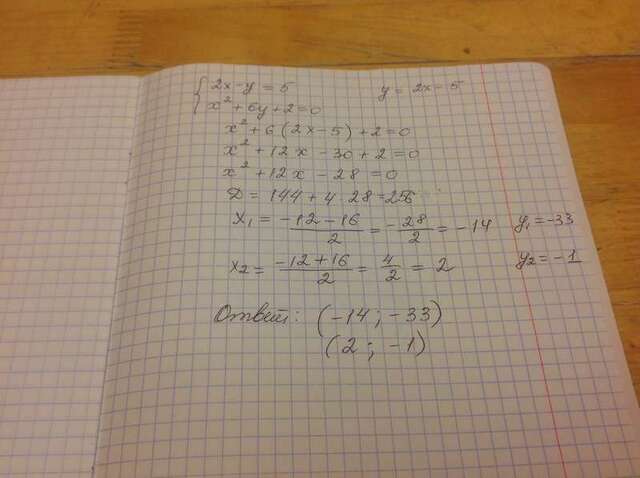 { 2x - y = 5      y = 2x - 5
x² + 6y + 2 = 0
x² + 6(2x - 5) + 2 = 0
x² + 12x - 30 + 2 = 0
x² + 12x - 28 = 0
D = 144 + 4 · 28 = 256
x₁ = (-12 - 16)/2 = -28/2 = -14      y₁ = -33
x₂ = (-12 + 16)/2 = 4/2 = 2      y₂ = -1
Ответ: (-14; -33)
(2; -1)